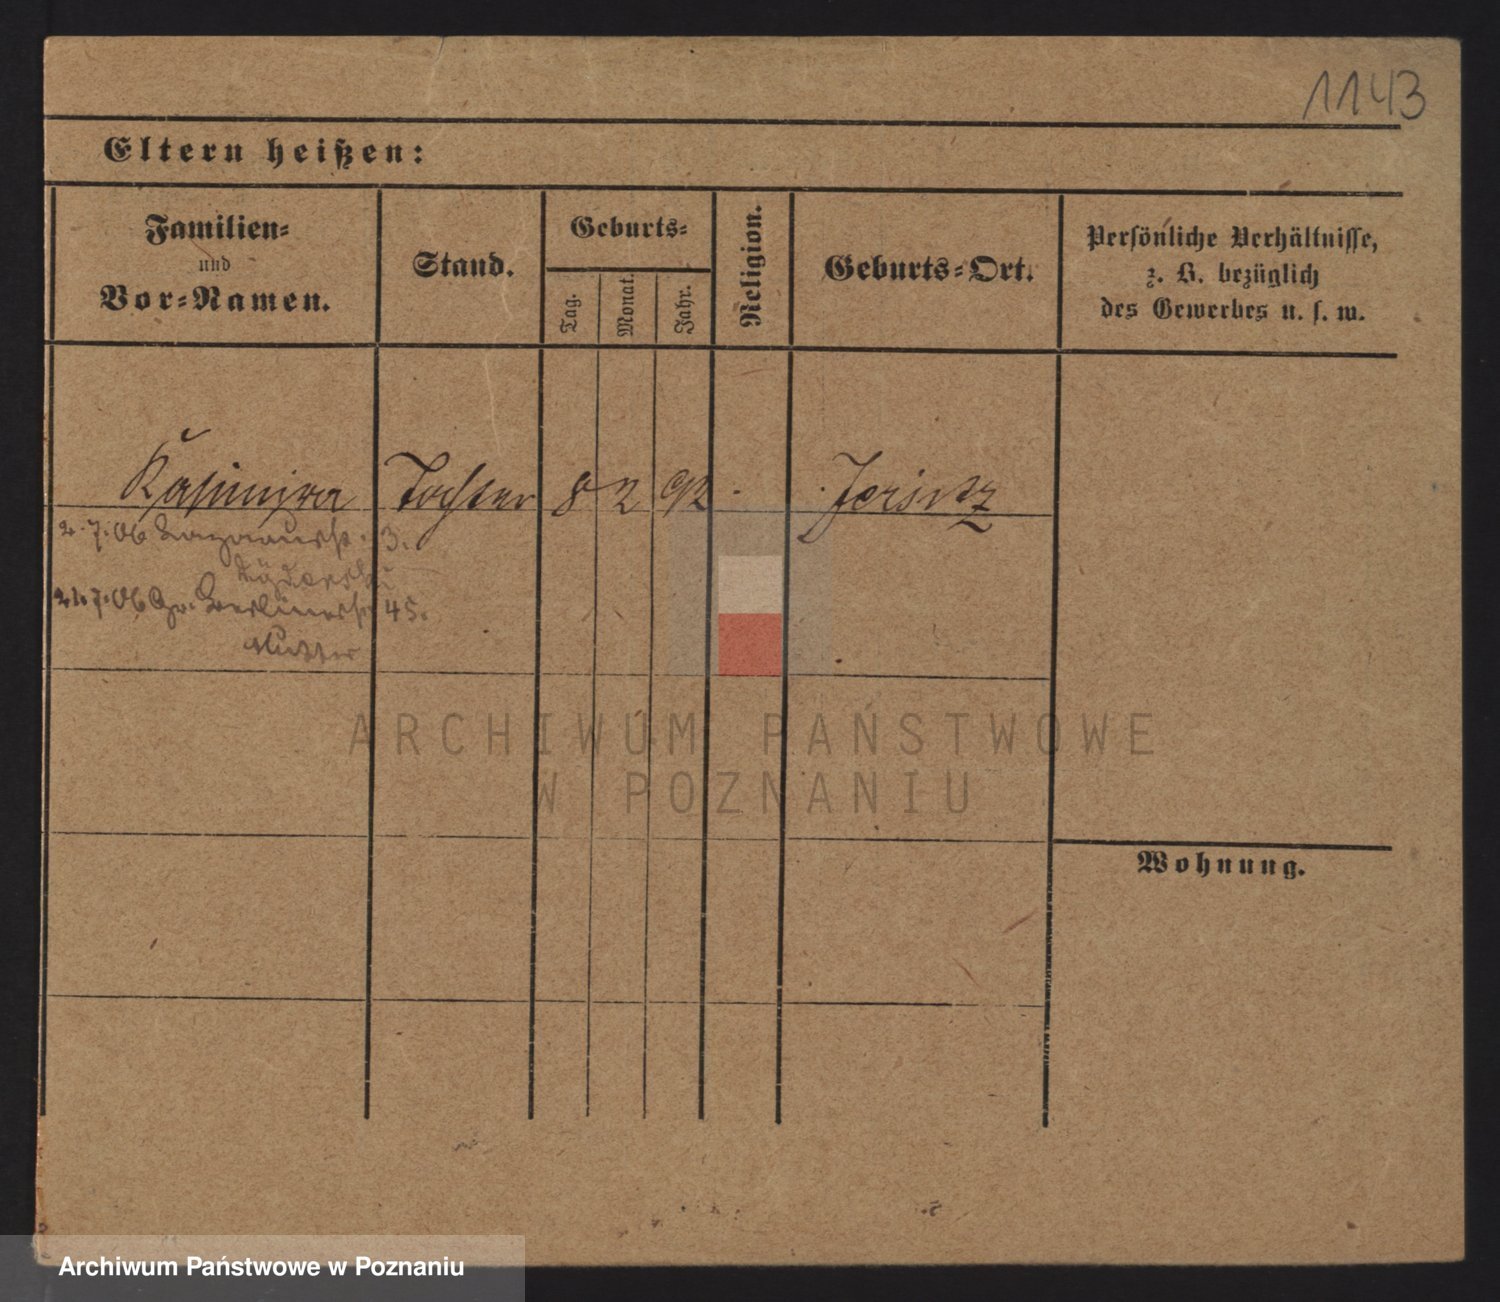 1143
Eltern heißen:
Familien-
und
Vor-Namen.
Stand.
Geburts-
Tag.
Monat.
Jahr.
Religion.
Geburts-Ort.
Persönliche Verhältnisse,
z. B. bezüglich
des Gewerbes u. s. w.
Kasimira Tochter 8 2 92 Jersitz
2.7.06 3.
24.7.06 Gr. Berlinerstr 45.
Mutter
ARCHIWUM PAŃSTWOWE
W POZNANIU
Wohnung.
Archiwum Państwowe w Poznaniu